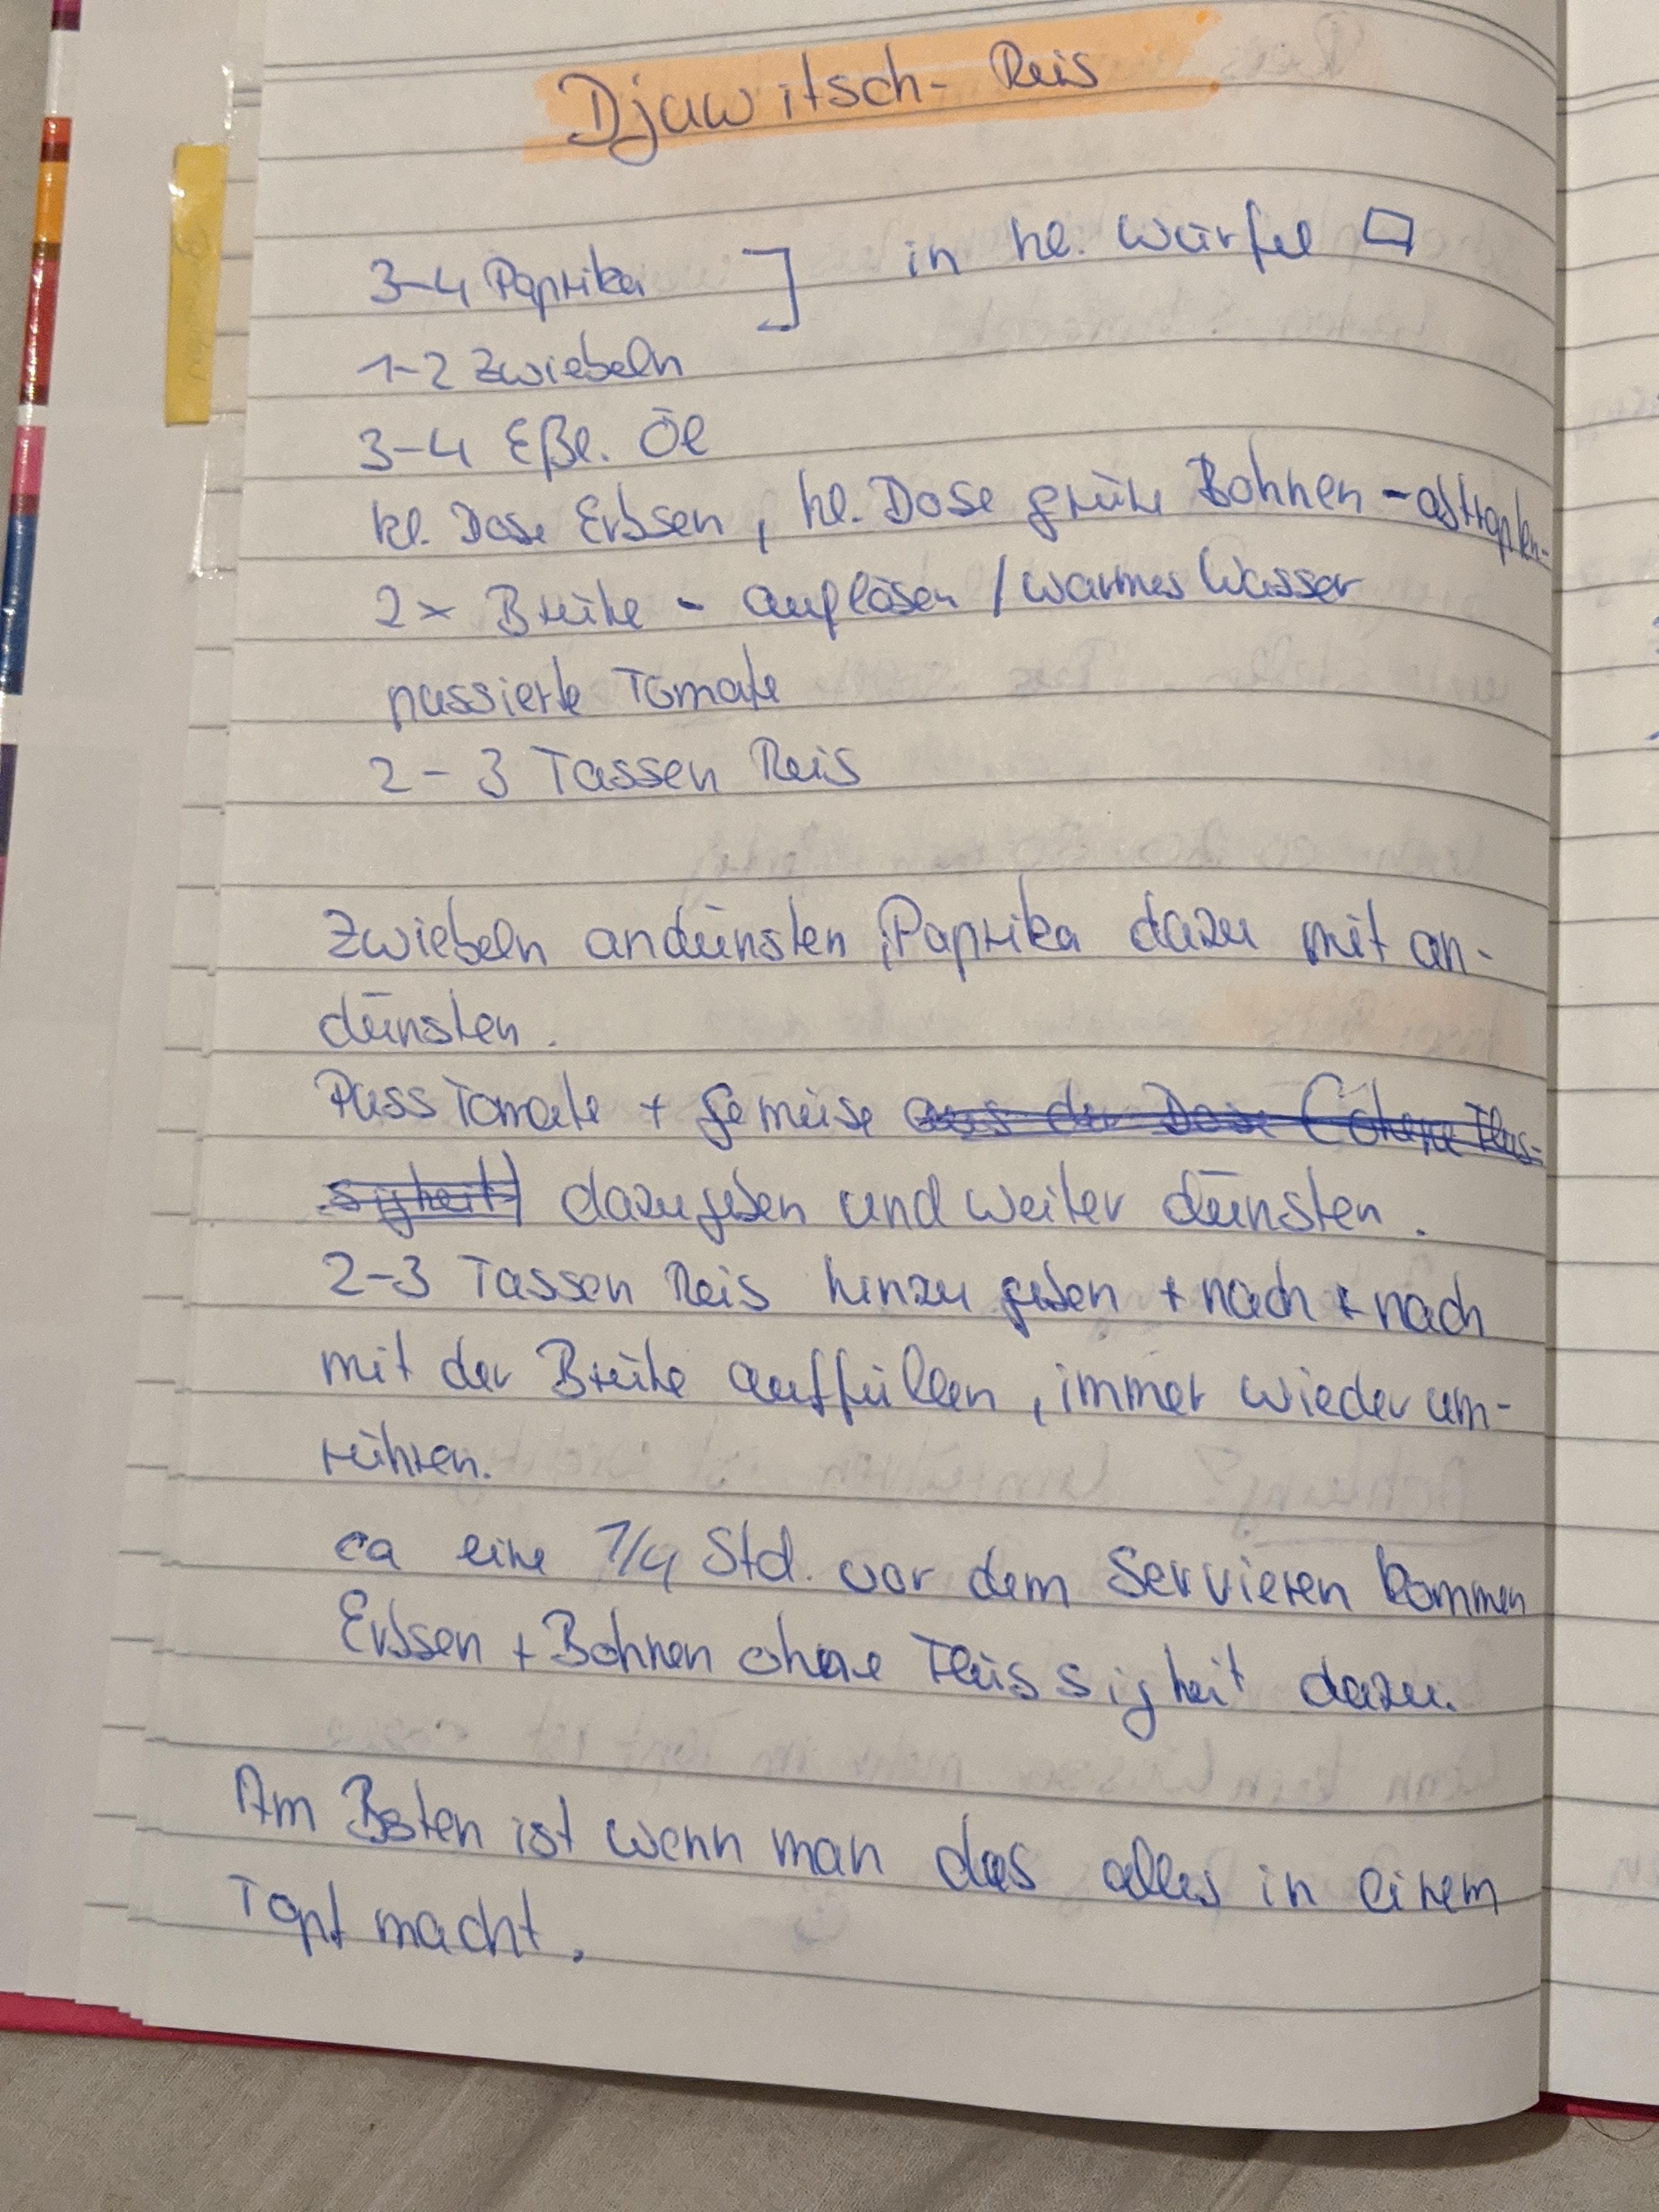 Djuwitsch-Reis
3-4 Paprika ] in kl. Würfel
1-2 Zwiebeln
3-4 Eßl. Öl
kl. Dose Erbsen, kl. Dose grüne Bohnen - abtropfen -
2x Brühe - auflösen / warmes Wasser
passierte Tomate
2-3 Tassen Reis
Zwiebeln andünsten, Paprika dazu mit an-
dünsten.
Pass Tomate + Gemüse aus der Dose (ohne Flüs-
sigkeit) dazugeben und weiter dünsten.
2-3 Tassen Reis hinzu geben + nach + nach
mit der Brühe auffüllen, immer wieder um-
rühren.
ca eine 1/4 Std. vor dem Servieren kommen
Erbsen + Bohnen ohne Flüssigkeit dazu.
Am Besten ist wenn man das alles in einem
Topf macht.